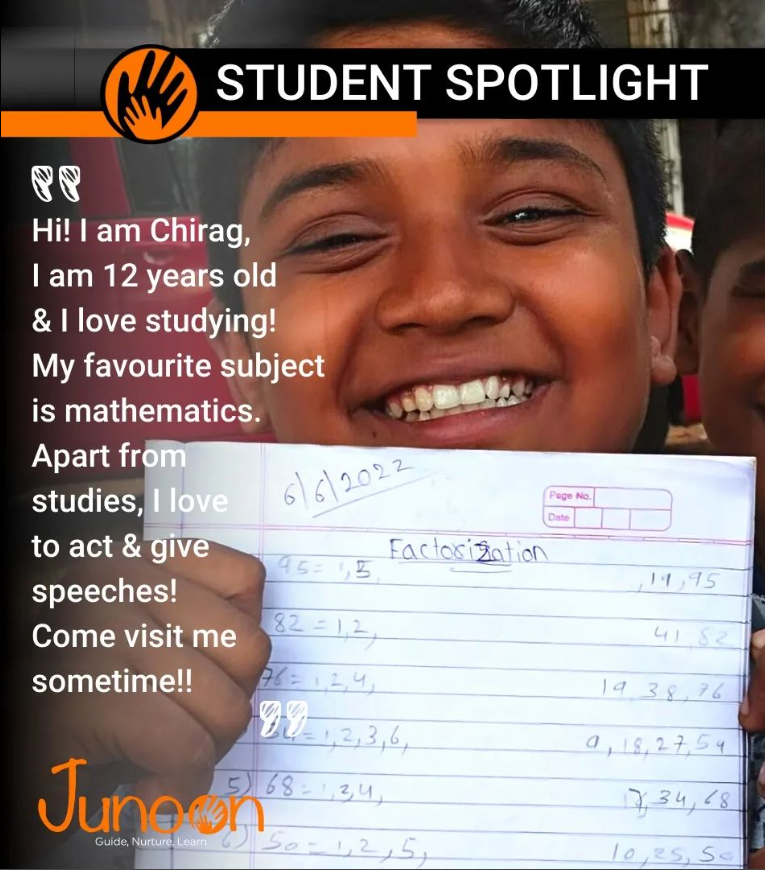 STUDENT SPOTLIGHT
Hi! I am Chirag,
I am 12 years old
& I love studying!
My favourite subject
is mathematics.
Apart from
studies, I love
to act & give
speeches!
Come visit me
sometime!!
6/6/2022
Page No.
Date
Factorization
95 = 1, 5, , 19, 95
82 = 1, 2, 41, 82
76 = 1, 2, 4, 19, 38, 76
= 1, 2, 3, 6, 9, 18, 27, 54
5) 68 = 1, 2, 4, 17, 34, 68
6) 50 = 1, 2, 5, 10, 25, 50
Junoon
Guide, Nurture, Learn